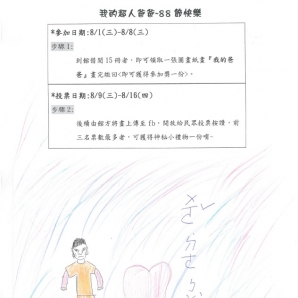 我的超人爸爸~88節快樂
*參加日期:8/1(三)~8/8(三)
步驟1:
到館借閱15冊者，即可領取一張圖畫紙畫『我的爸
爸』畫完繳回<即可獲得參加獎一份>。
*投票日期:8/9(三)~8/16(四)
步驟2:
後續由館方將畫上傳至fb，開放給民眾投票按讚，前
三名票數最多者，可獲得神秘小禮物一份喔。